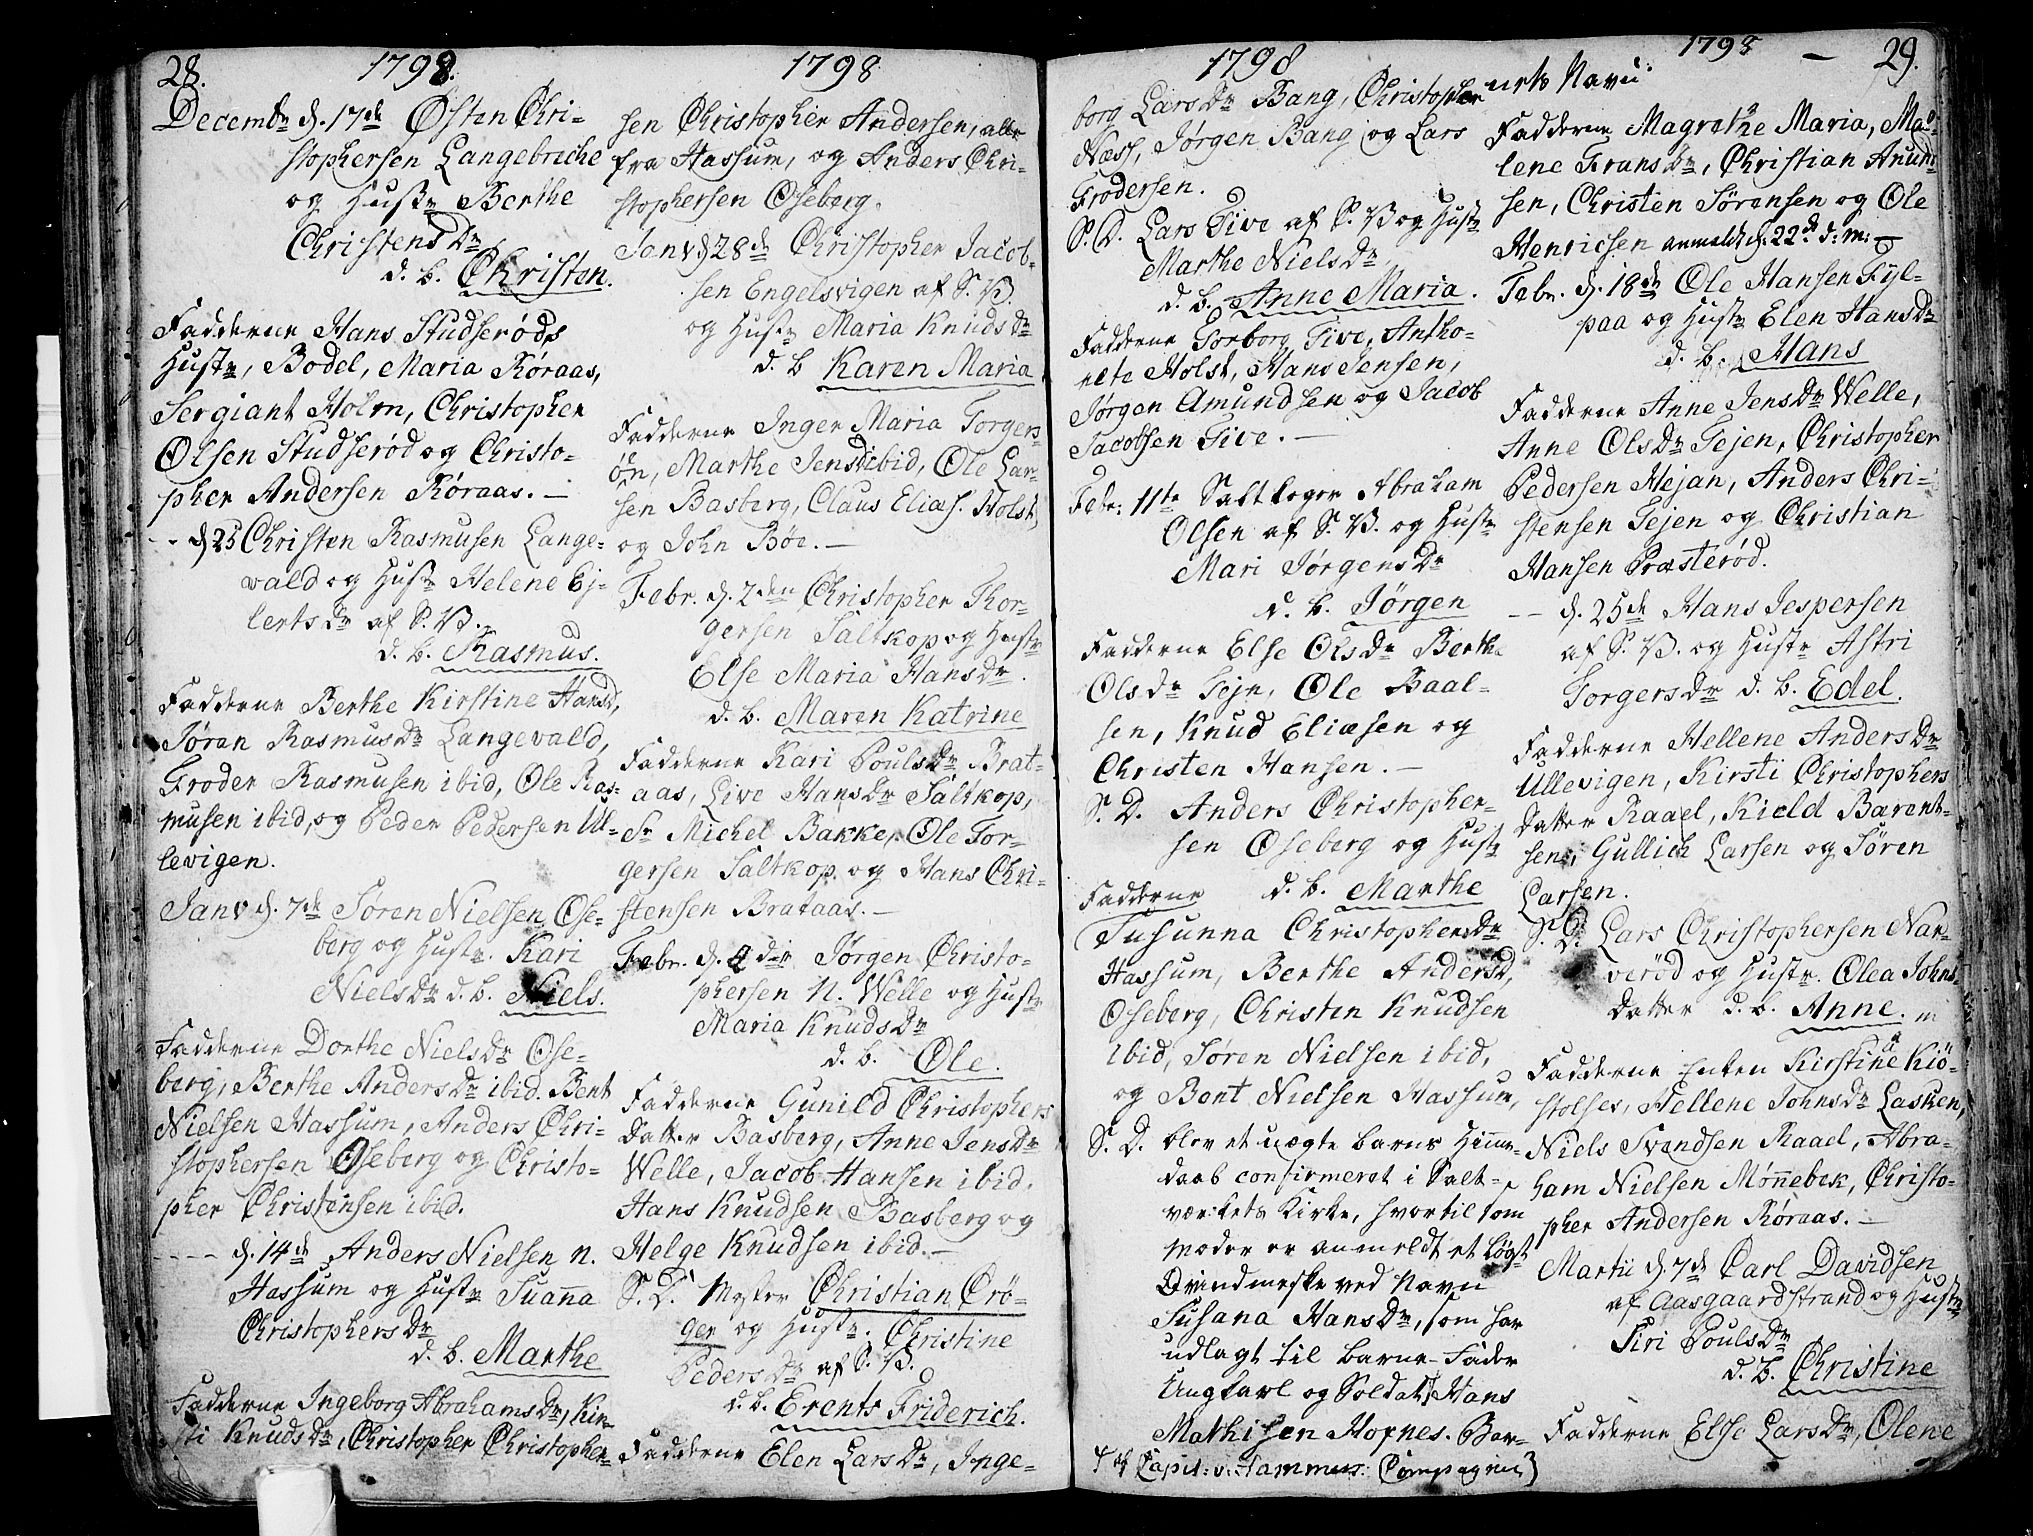 28. 1798.
Decembr d. 17de Østen Chri-
stophersen Langebreche
og Hustr Berthe
Christensdr
d. b. Christen.
Fadderne Hans Studserøds
Hustr, Bodel, Maria Røraas,
Sergiant Holm, Christopher
Olsen Studserød og Christo-
pher Andersen Røraas. —
- - d. 25 Christen Rasmusen Lange-
vald og Hustr Helene Ej-
lertsdr af S. V.
d. b. Rasmus.
Fadderne Berthe Kirstine Hansd,
Søran Rasmusdr Langevald,
Froder Rasmusen ibid, Ole Ras-
musen ibid, og Peder Pedersen Ul-
levigen.
Janv d. 7de Søren Nielsen Ose-
berg og Hustr. Kari
Nielsdr d. b. Niels.
Fadderne Dorthe Nielsdr Ose-
berg, Berthe Andersdr ibid. Bent
Nielsen Hassum, Anders Chri-
stophersen Oseberg og Christo-
pher Christensen ibid.
- - - - d. 14de Anders Nielsen n.
Hassum og Hustr Suanna
Christophersdr
d. b. Marthe
Fadderne Ingeborg Abrahamsdr, Kir-
sti Knudsdr, Christopher Christopher-
1798
sen Christopher Andersen, alle
fra Hassum, og Anders Chri-
stophersen Oseberg.
Janv d. 28de Christopher Jacob-
sen Engelsvigen af S. V.
og Hustr Maria Knudsdr
d. b Karen Maria
Fadderne Inger Maria Torgers-
ön, Marthe Jensd ibid, Ole Lar-
sen Basberg, Claus Elias. Holst,
og John Böe. —
Febr. d. 2den Christopher Thor-
gersen Saltkop og Hustr
Else Maria Hansdr.
d. b. Maren Katrine
Fadderne Kari Poulsdr Brat-
aas, Live Hansdr Saltkop,
Sr Michel Bakke, Ole Tor-
gersen Saltkop og Hans Chri-
stensen Brataas. —
Febr. d. 4die Jørgen Christo-
phersen N. Welle og Hustr
Maria Knudsdr
d. b. Ole.
Fadderne Gunild Christophers
Datter Basberg, Anne Jensdr
Welle, Jacob Hansen ibid.
Hans Knudsen Basberg og
Helge Knudsen ibid. —
S. D. Mester Christian Crö-
ger og Hustr. Christine
Pedersdr af S. V.
d. b. Erents Friderich.
Fadderne Elen Larsdr, Inge-
1798
borg Larsdr Bang, Christopher
Næss, Jørgen Bang og Lars
Frodersen.
S. D. Lars Tive af S. V og Hustr
Marthe Nielsdr
d. b. Anne Maria.
Fadderne Torborg Tive, Antho-
nete Holst, Hans Jensen,
Jørgen Amundsen og Jacob
Jacobsen Tive. —
Febr: 11te Saltkoger Abraham
Olsen af S. V. og Hustr
Mari Jørgensdr
d. b. Jörgen
Fadderne Else Olsdr Berthe
Olsdr Tejn, Ole Baal-
sen, Knud Eliæsen og
Christen Hansen. —
S. D. Anders Christopher-
sen Oseberg og Hustr
d. b. Marthe
Fadderne
Susunna Christophersdr
Hassum, Berthe Andersd,
Oseberg, Christen Knudsen
ibid, Søren Nielsen ibid,
og Bent Nielsen Hassum,
S. D. blev et uægte Barns Hiemme-
daab confirmeret i Salt-
værkets Kirke, hvortil som
Moder er anmeldt et løgst
Qvindmeske ved Navn
Susana Hansdr, som har
udlagt til Barne-Fader
Ungkarl og Soldat Hans
Mathisen Hopnes. Bar-
af Capit: v: Hammers: Compagnie}
1798 — 29.
nets Navn
Fadderne Magrethe Maria, Mad-
lene Fransdr, Christian Anund-
sen, Christen Sørensen og Ole
Henricsen anmeldt d. 22de d: m: —
Febr. d. 18de Ole Hansen Fyl-
paa og Hustr Elen Hansdr
d. b. Hans
Fadderne Anne Jensdr Welle,
Anne Olsdr Tejen, Christopher
Pedersen Hejan, Anders Chri-
stensen Tejen og Christian
Hansen Præsterød.
— d. 25de Hans Jespersen
af S. V. og Hustr Astri
Torgersdr d. b. Edel.
Fadderne Hellene Andersdr
Ullevigen, Kirsti Christophers
Datter Raael, Kield Barent-
sen, Gullich Larsen og Sören
Larsen.
S. D. Lars Christophersen Nar-
veröd og Hustr. Olea Johns-
datter d. b. Anne.
Fadderne Enken Kirstine Kiö-
stolses, Hellene Johnsdr Lasken,
Niels Svendsen Raael, Abra-
ham Nielsen Mønnebek, Christo-
pher Andersen Røraas. —
Martii d. 7de Carl Davidsen
af Aasgaardstrand og Hustr
Siri Poulsdr
d. b. Christine
Fadderne Else Larsdr, Olene